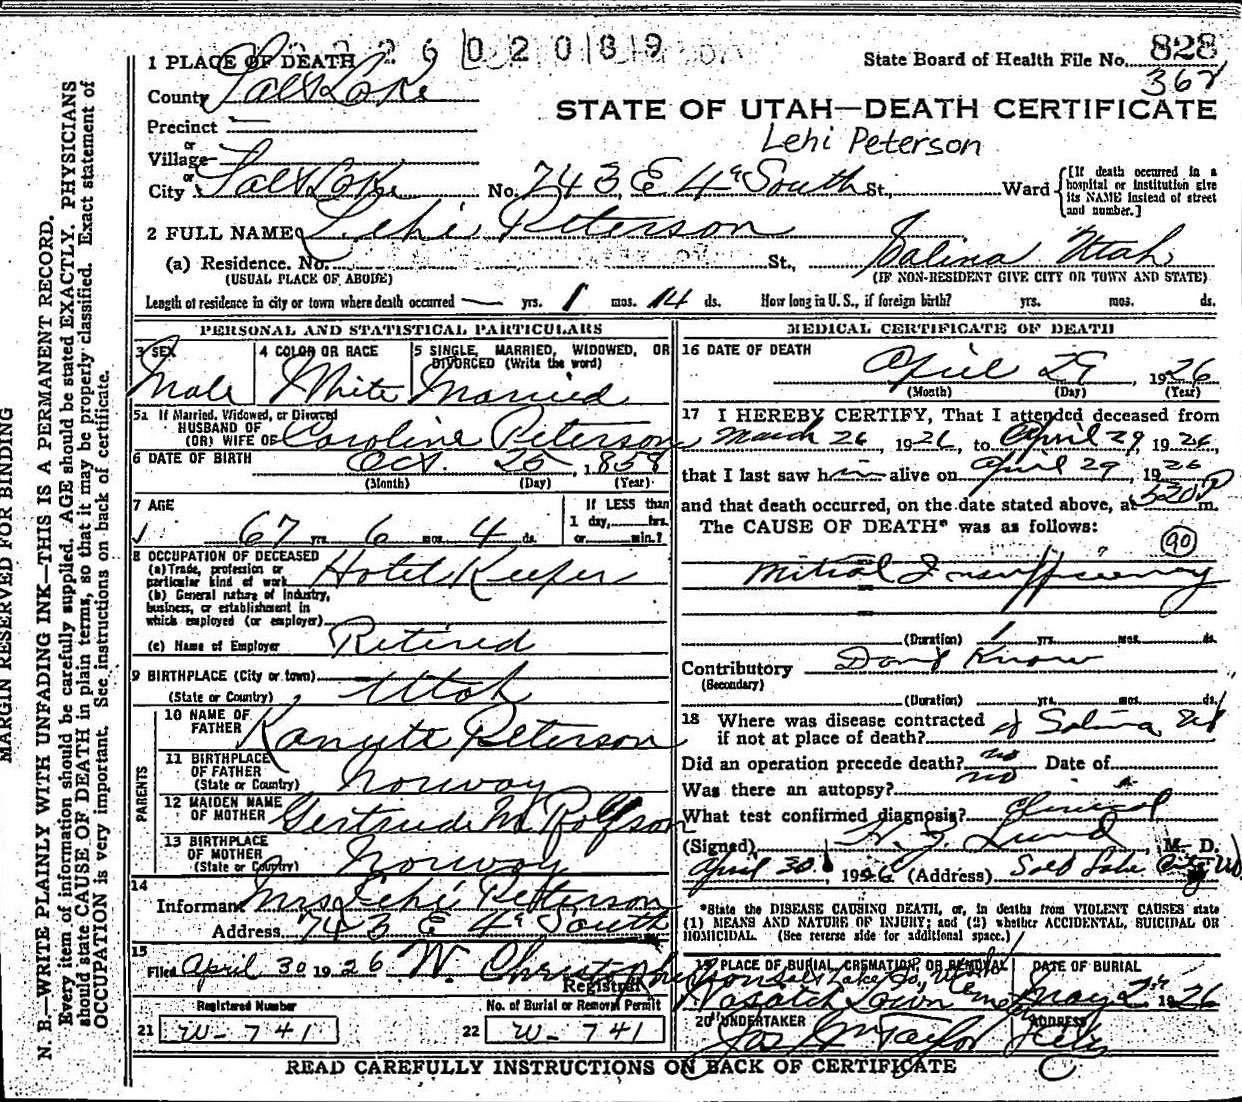 26 020839
1 PLACE OF DEATH
State Board of Health File No. 828
County Salt Lake
STATE OF UTAH—DEATH CERTIFICATE
Precinct
Lehi Peterson
or
Village
or
City Salt Lake No. 743 E 4th South St., Ward
[If death occurred in a hospital or institution give its NAME instead of street and number.]
2 FULL NAME Lehi Peterson
(a) Residence. No. St., Salina Utah
(USUAL PLACE OF ABODE) (IF NON-RESIDENT GIVE CITY OR TOWN AND STATE)
Length of residence in city or town where death occurred — yrs. 1 mos. 14 ds. How long in U. S., if foreign birth? yrs. mos. ds.
PERSONAL AND STATISTICAL PARTICULARS
3 SEX
Male
4 COLOR OR RACE
White
5 SINGLE, MARRIED, WIDOWED, OR DIVORCED (Write the word)
Married
5a If Married, Widowed, or Divorced
HUSBAND OF
(OR) WIFE OF Caroline Peterson
6 DATE OF BIRTH Oct. 25, 1858
(Month) (Day) (Year)
7 AGE
67 yrs. 6 mos. 4 ds.
If LESS than
1 day, hrs.
or min.?
8 OCCUPATION OF DECEASED
(a) Trade, profession or
particular kind of work Hotel Keeper
(b) General nature of industry,
business, or establishment in
which employed (or employer)
(c) Name of Employer Retired
9 BIRTHPLACE (City or town)
(State or Country) Utah
PARENTS
10 NAME OF
FATHER Kanute Peterson
11 BIRTHPLACE
OF FATHER
(State or Country) Norway
12 MAIDEN NAME
OF MOTHER Gertrude M Rolfson
13 BIRTHPLACE
OF MOTHER
(State or Country) Norway
14
Informant Mrs Lehi Peterson
Address 743 E 4th South
15
Filed April 30 1926
Registrar
Registered Number
21 W-741
No. of Burial or Removal Permit
22 W-741
MEDICAL CERTIFICATE OF DEATH
16 DATE OF DEATH
April 29, 1926
(Month) (Day) (Year)
17 I HEREBY CERTIFY, That I attended deceased from
March 26, 1926, to April 29, 1926,
that I last saw him alive on April 29, 1926
and that death occurred, on the date stated above, at 5:20 P m.
The CAUSE OF DEATH* was as follows:
90
Mitral Insufficiency
(Duration) 1 yrs. mos. ds.
Contributory Don't Know
(Secondary)
(Duration) yrs. mos. ds.
18 Where was disease contracted
if not at place of death? Salina
Did an operation precede death? no Date of
Was there an autopsy? no
What test confirmed diagnosis? Clinical
(Signed) Lund, M. D.
April 30, 1926 (Address) Salt Lake City
*State the DISEASE CAUSING DEATH, or, in deaths from VIOLENT CAUSES state
(1) MEANS AND NATURE OF INJURY; and (2) whether ACCIDENTAL, SUICIDAL OR
HOMICIDAL. (See reverse side for additional space.)
19 PLACE OF BURIAL, CREMATION, OR REMOVAL
Wasatch Lawn
DATE OF BURIAL
May 2 1926
20 UNDERTAKER
Taylor
ADDRESS
READ CAREFULLY INSTRUCTIONS ON BACK OF CERTIFICATE
MARGIN RESERVED FOR BINDING
N. B.—WRITE PLAINLY WITH UNFADING INK—THIS IS A PERMANENT RECORD.
Every item of information should be carefully supplied. AGE should be stated EXACTLY. PHYSICIANS
should state CAUSE OF DEATH in plain terms, so that it may be properly classified. Exact statement of
OCCUPATION is very important. See instructions on back of certificate.